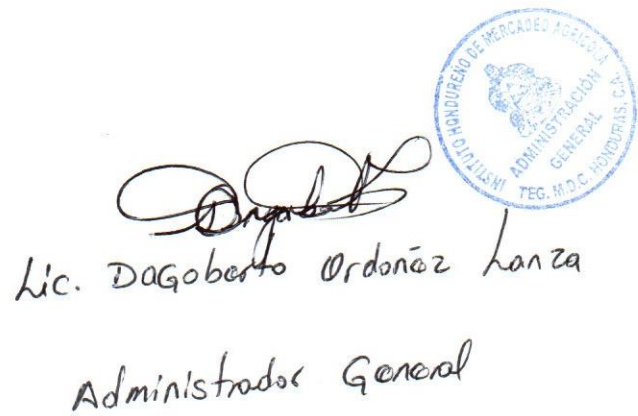 INSTITUTO HONDUREÑO DE MERCADEO AGRICOLA
ADMINISTRACIÓN
GENERAL
TEG. M.D.C. HONDURAS, C.A.
Lic. Dagoberto Ordoñez Lanza
Administrador General